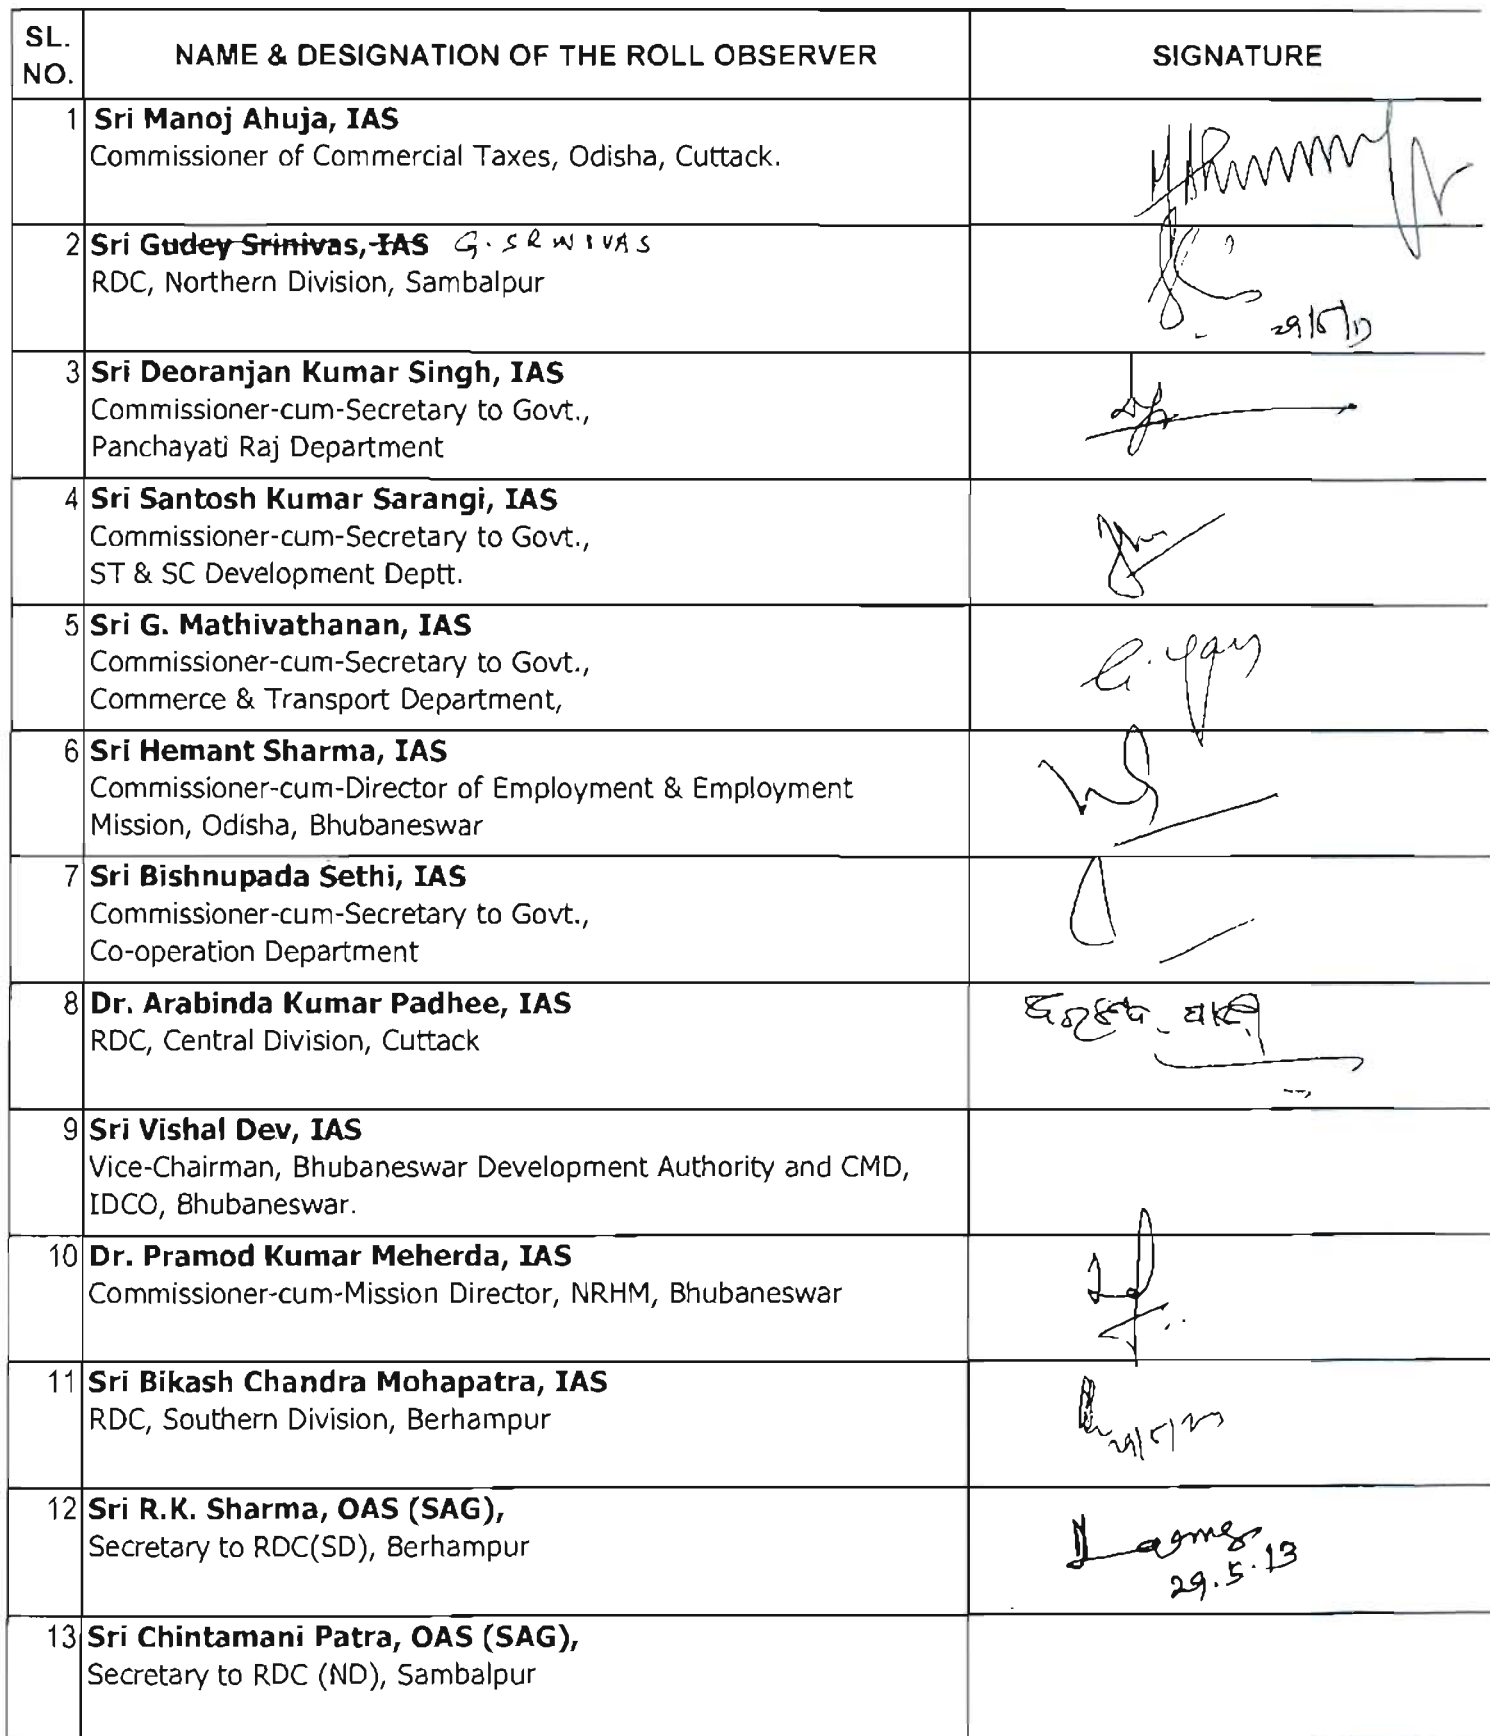 SL. NO.
NAME & DESIGNATION OF THE ROLL OBSERVER
SIGNATURE
1 Sri Manoj Ahuja, IAS
Commissioner of Commercial Taxes, Odisha, Cuttack.
2 Sri Gudey Srinivas, IAS G. SRINIVAS
RDC, Northern Division, Sambalpur
29/5/13
3 Sri Deoranjan Kumar Singh, IAS
Commissioner-cum-Secretary to Govt.,
Panchayati Raj Department
4 Sri Santosh Kumar Sarangi, IAS
Commissioner-cum-Secretary to Govt.,
ST & SC Development Deptt.
5 Sri G. Mathivathanan, IAS
Commissioner-cum-Secretary to Govt.,
Commerce & Transport Department,
6 Sri Hemant Sharma, IAS
Commissioner-cum-Director of Employment & Employment
Mission, Odisha, Bhubaneswar
7 Sri Bishnupada Sethi, IAS
Commissioner-cum-Secretary to Govt.,
Co-operation Department
8 Dr. Arabinda Kumar Padhee, IAS
RDC, Central Division, Cuttack
9 Sri Vishal Dev, IAS
Vice-Chairman, Bhubaneswar Development Authority and CMD,
IDCO, Bhubaneswar.
10 Dr. Pramod Kumar Meherda, IAS
Commissioner-cum-Mission Director, NRHM, Bhubaneswar
11 Sri Bikash Chandra Mohapatra, IAS
RDC, Southern Division, Berhampur
12 Sri R.K. Sharma, OAS (SAG),
Secretary to RDC(SD), Berhampur
29.5.13
13 Sri Chintamani Patra, OAS (SAG),
Secretary to RDC (ND), Sambalpur